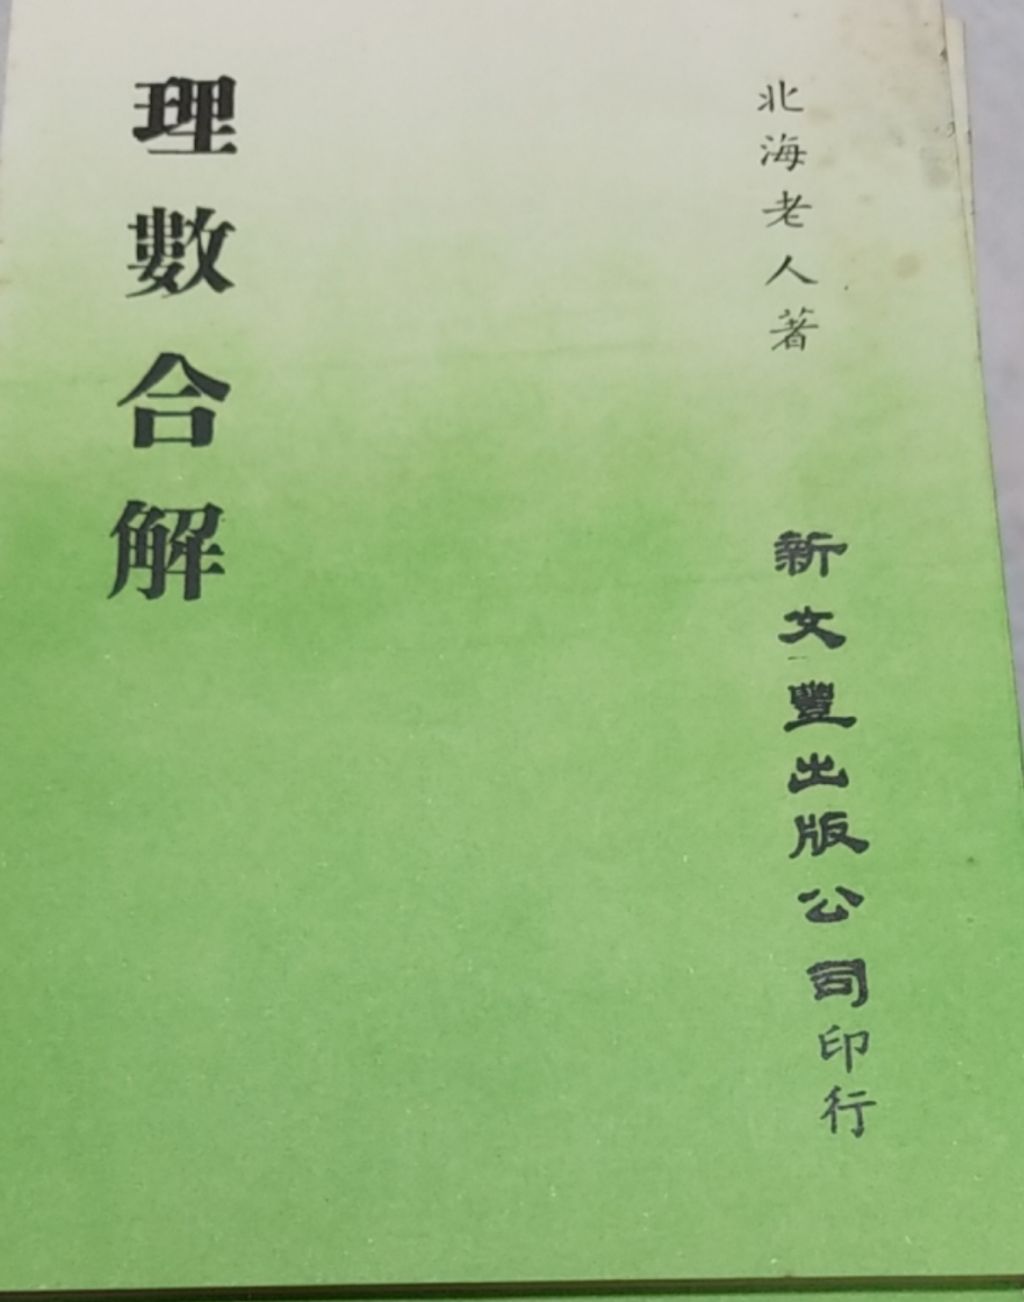 北海老人著
新文豐出版公司印行
理數合解